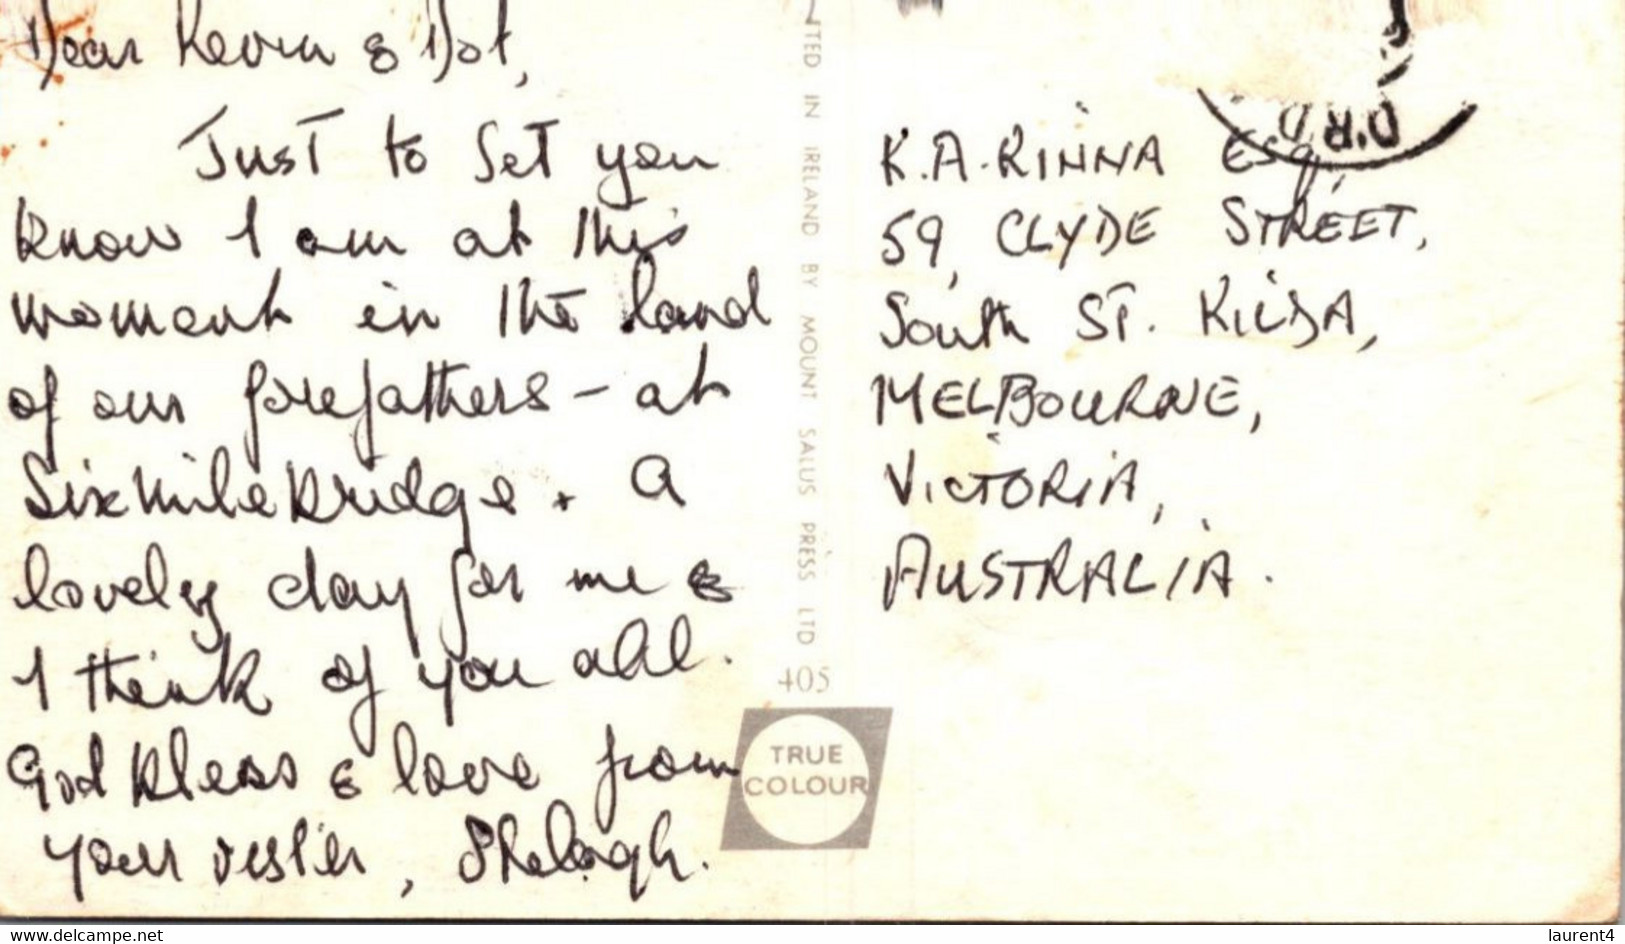 Dear Kevin & Dot,
Just to let you
know I am at this
moment in the land
of our forefathers - at
Sixmilebridge. A
lovely day for me &
I think of you all.
God bless & love from
your sister, Shelagh.
NTED IN IRELAND BY MOUNT SALUS PRESS LTD
405
TRUE
COLOUR
K.A. KINNA Esq,
59, CLYDE STREET,
South ST. KILDA,
MELBOURNE,
VICTORIA,
AUSTRALIA.
www.delcampe.net
laurent4